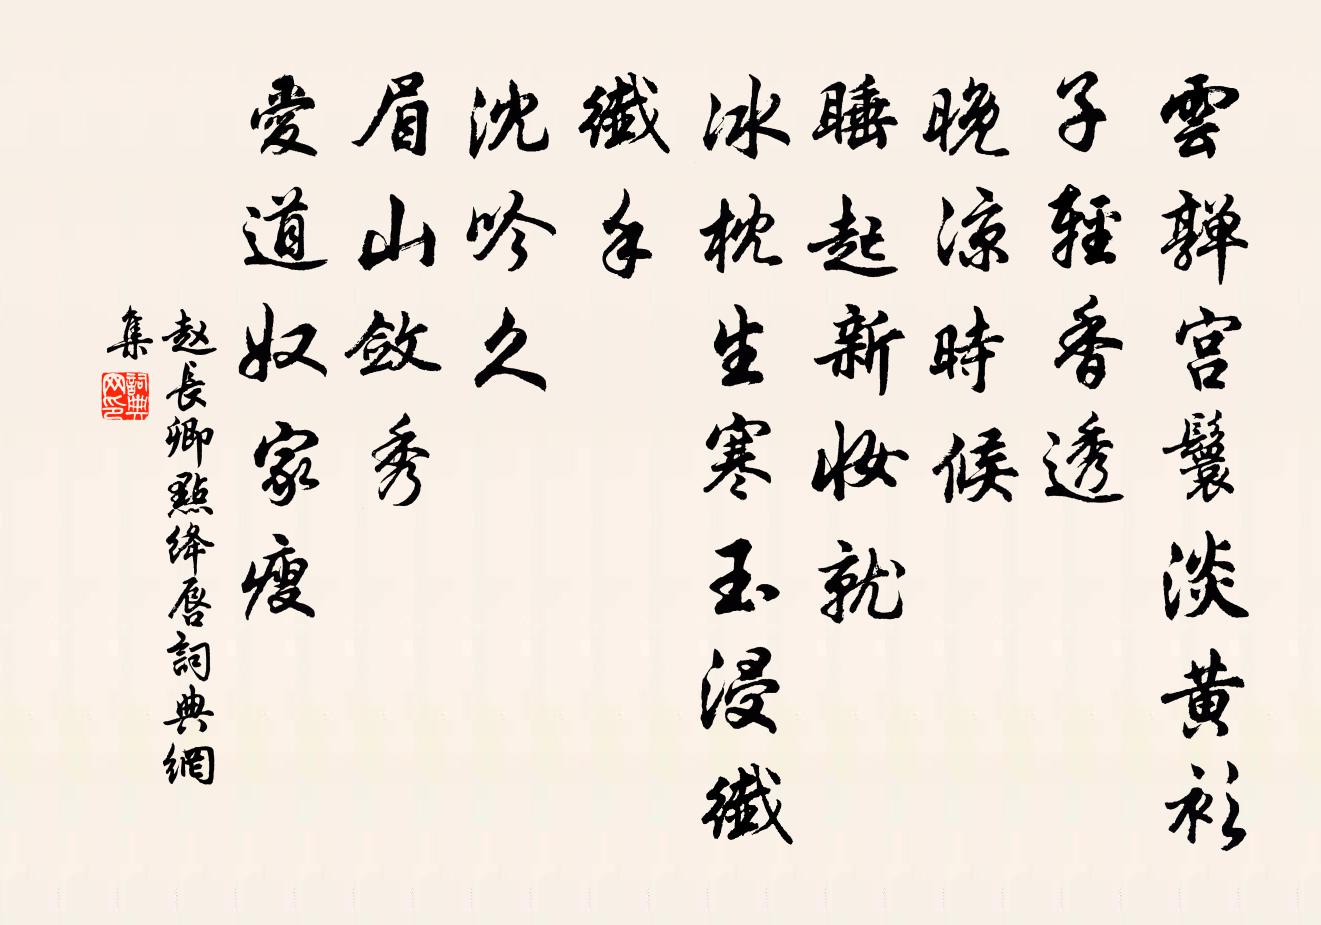 雲亸宮鬟淡黃衫
子輕香透
晚涼時候
睡起新妝就
冰枕生寒玉浸纖
纖手
沈吟久
眉山斂秀
愛道奴家瘦
趙長卿點絳唇詞典網
集
詞典網印